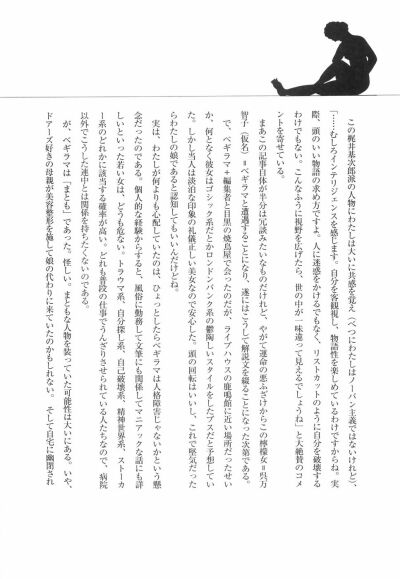 この梶井基次郎派の人物にわたしは大いに共感を覚え(べつにわたしはノーパン主義ではないけれど)、
「……むしろインテリジェンスを感じます。自分を客観視し、物語性を楽しめているわけですからね。実
際、頭のいい物語の求め方ですよ。人に迷惑をかけるでもなく、リストカットのように自分を破壊する
わけでもない。こんなふうに視野を広げたら、世の中が一味違って見えるでしょうね」と大絶賛のコメ
ントを寄せている。
まあこの記事自体が半分は冗談みたいなものだけれど、やがて運命の悪ふざけからこの檸檬女=呉万
智子(仮名)=ベギラマと遭遇することになり、遂にはこうして解説文を綴ることになった次第である。
で、ベギラマ+編集者と目黒の焼鳥屋で会ったのだが、ライブハウスの鹿鳴館に近い場所だったせい
か、何となく彼女はゴシック系だとかロンドンパンク系の鬱陶しいスタイルをしたブスだと予想してい
た。しかし当人は淡泊な印象の礼儀正しい美女なので安心した。頭の回転はいいし、これで堅気だった
らわたしの娘であると認知してもいいんだけどね。
実は、わたしが何よりも心配していたのは、ひょっとしたらベギラマは人格障害じゃないかという懸
念だったのである。個人的な経験からすると、風俗に勤務して文筆にも関係してマニアックな話にも詳
しいといった若い女は、どうも危ない。トラウマ系、自分探し系、自己破壊系、精神世界系、ストーカ
ー系のどれかに該当する確率が高い。どれも普段の仕事でうんざりさせられている人たちなので、病院
以外でこうした連中とは関係を持ちたくないのである。
が、ベギラマは「まとも」であった。怪しい。まともな人物を装っていた可能性は大いにある。いや、
ドアーズ好きの母親が美容整形を施して娘の代わりに来ていたのかもしれない。そして自宅に幽閉され